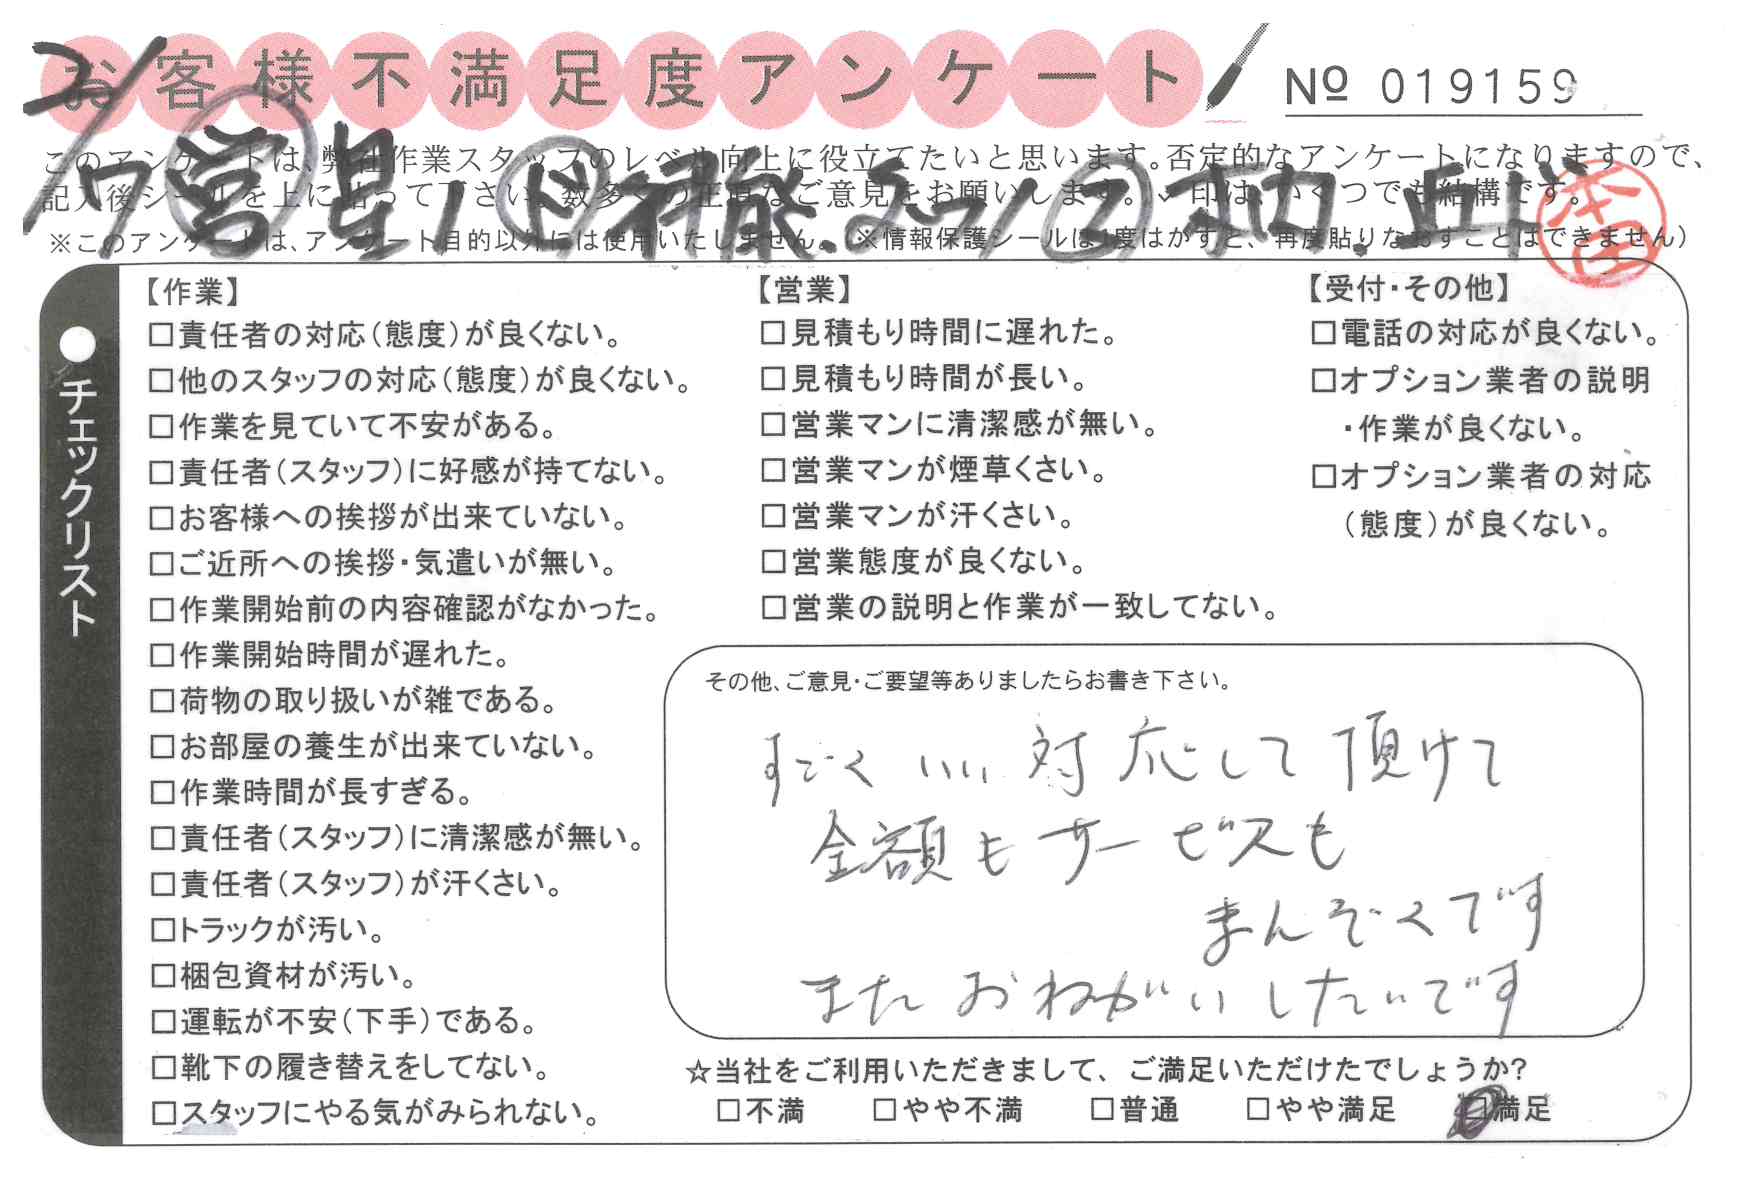 お客様不満足度アンケート
№ 019159
このアンケートは、弊社作業スタッフのレベル向上に役立てたいと思います。否定的なアンケートになりますので、
記入後シールを上に貼って下さい。数多くの正直なご意見をお願いします。✓印は、いくつでも結構です。
※このアンケートは、アンケート目的以外には使用いたしません。(※情報保護シールは1度はがすと、再度貼りなおすことはできません)
2/17 営 星 / ド
本田
●チェックリスト
【作業】
□責任者の対応(態度)が良くない。
□他のスタッフの対応(態度)が良くない。
□作業を見ていて不安がある。
□責任者(スタッフ)に好感が持てない。
□お客様への挨拶が出来ていない。
□ご近所への挨拶・気遣いが無い。
□作業開始前の内容確認がなかった。
□作業開始時間が遅れた。
□荷物の取り扱いが雑である。
□お部屋の養生が出来ていない。
□作業時間が長すぎる。
□責任者(スタッフ)に清潔感が無い。
□責任者(スタッフ)が汗くさい。
□トラックが汚い。
□梱包資材が汚い。
□運転が不安(下手)である。
□靴下の履き替えをしてない。
□スタッフにやる気がみられない。
【営業】
□見積もり時間に遅れた。
□見積もり時間が長い。
□営業マンに清潔感が無い。
□営業マンが煙草くさい。
□営業マンが汗くさい。
□営業態度が良くない。
□営業の説明と作業が一致してない。
【受付・その他】
□電話の対応が良くない。
□オプション業者の説明
・作業が良くない。
□オプション業者の対応
(態度)が良くない。
その他、ご意見・ご要望等ありましたらお書き下さい。
すごく いい 対応して 頂けて
金額も サービスも
まんぞくです
また おねがい したいです
☆当社をご利用いただきまして、ご満足いただけたでしょうか?
□不満 □やや不満 □普通 □やや満足 □満足